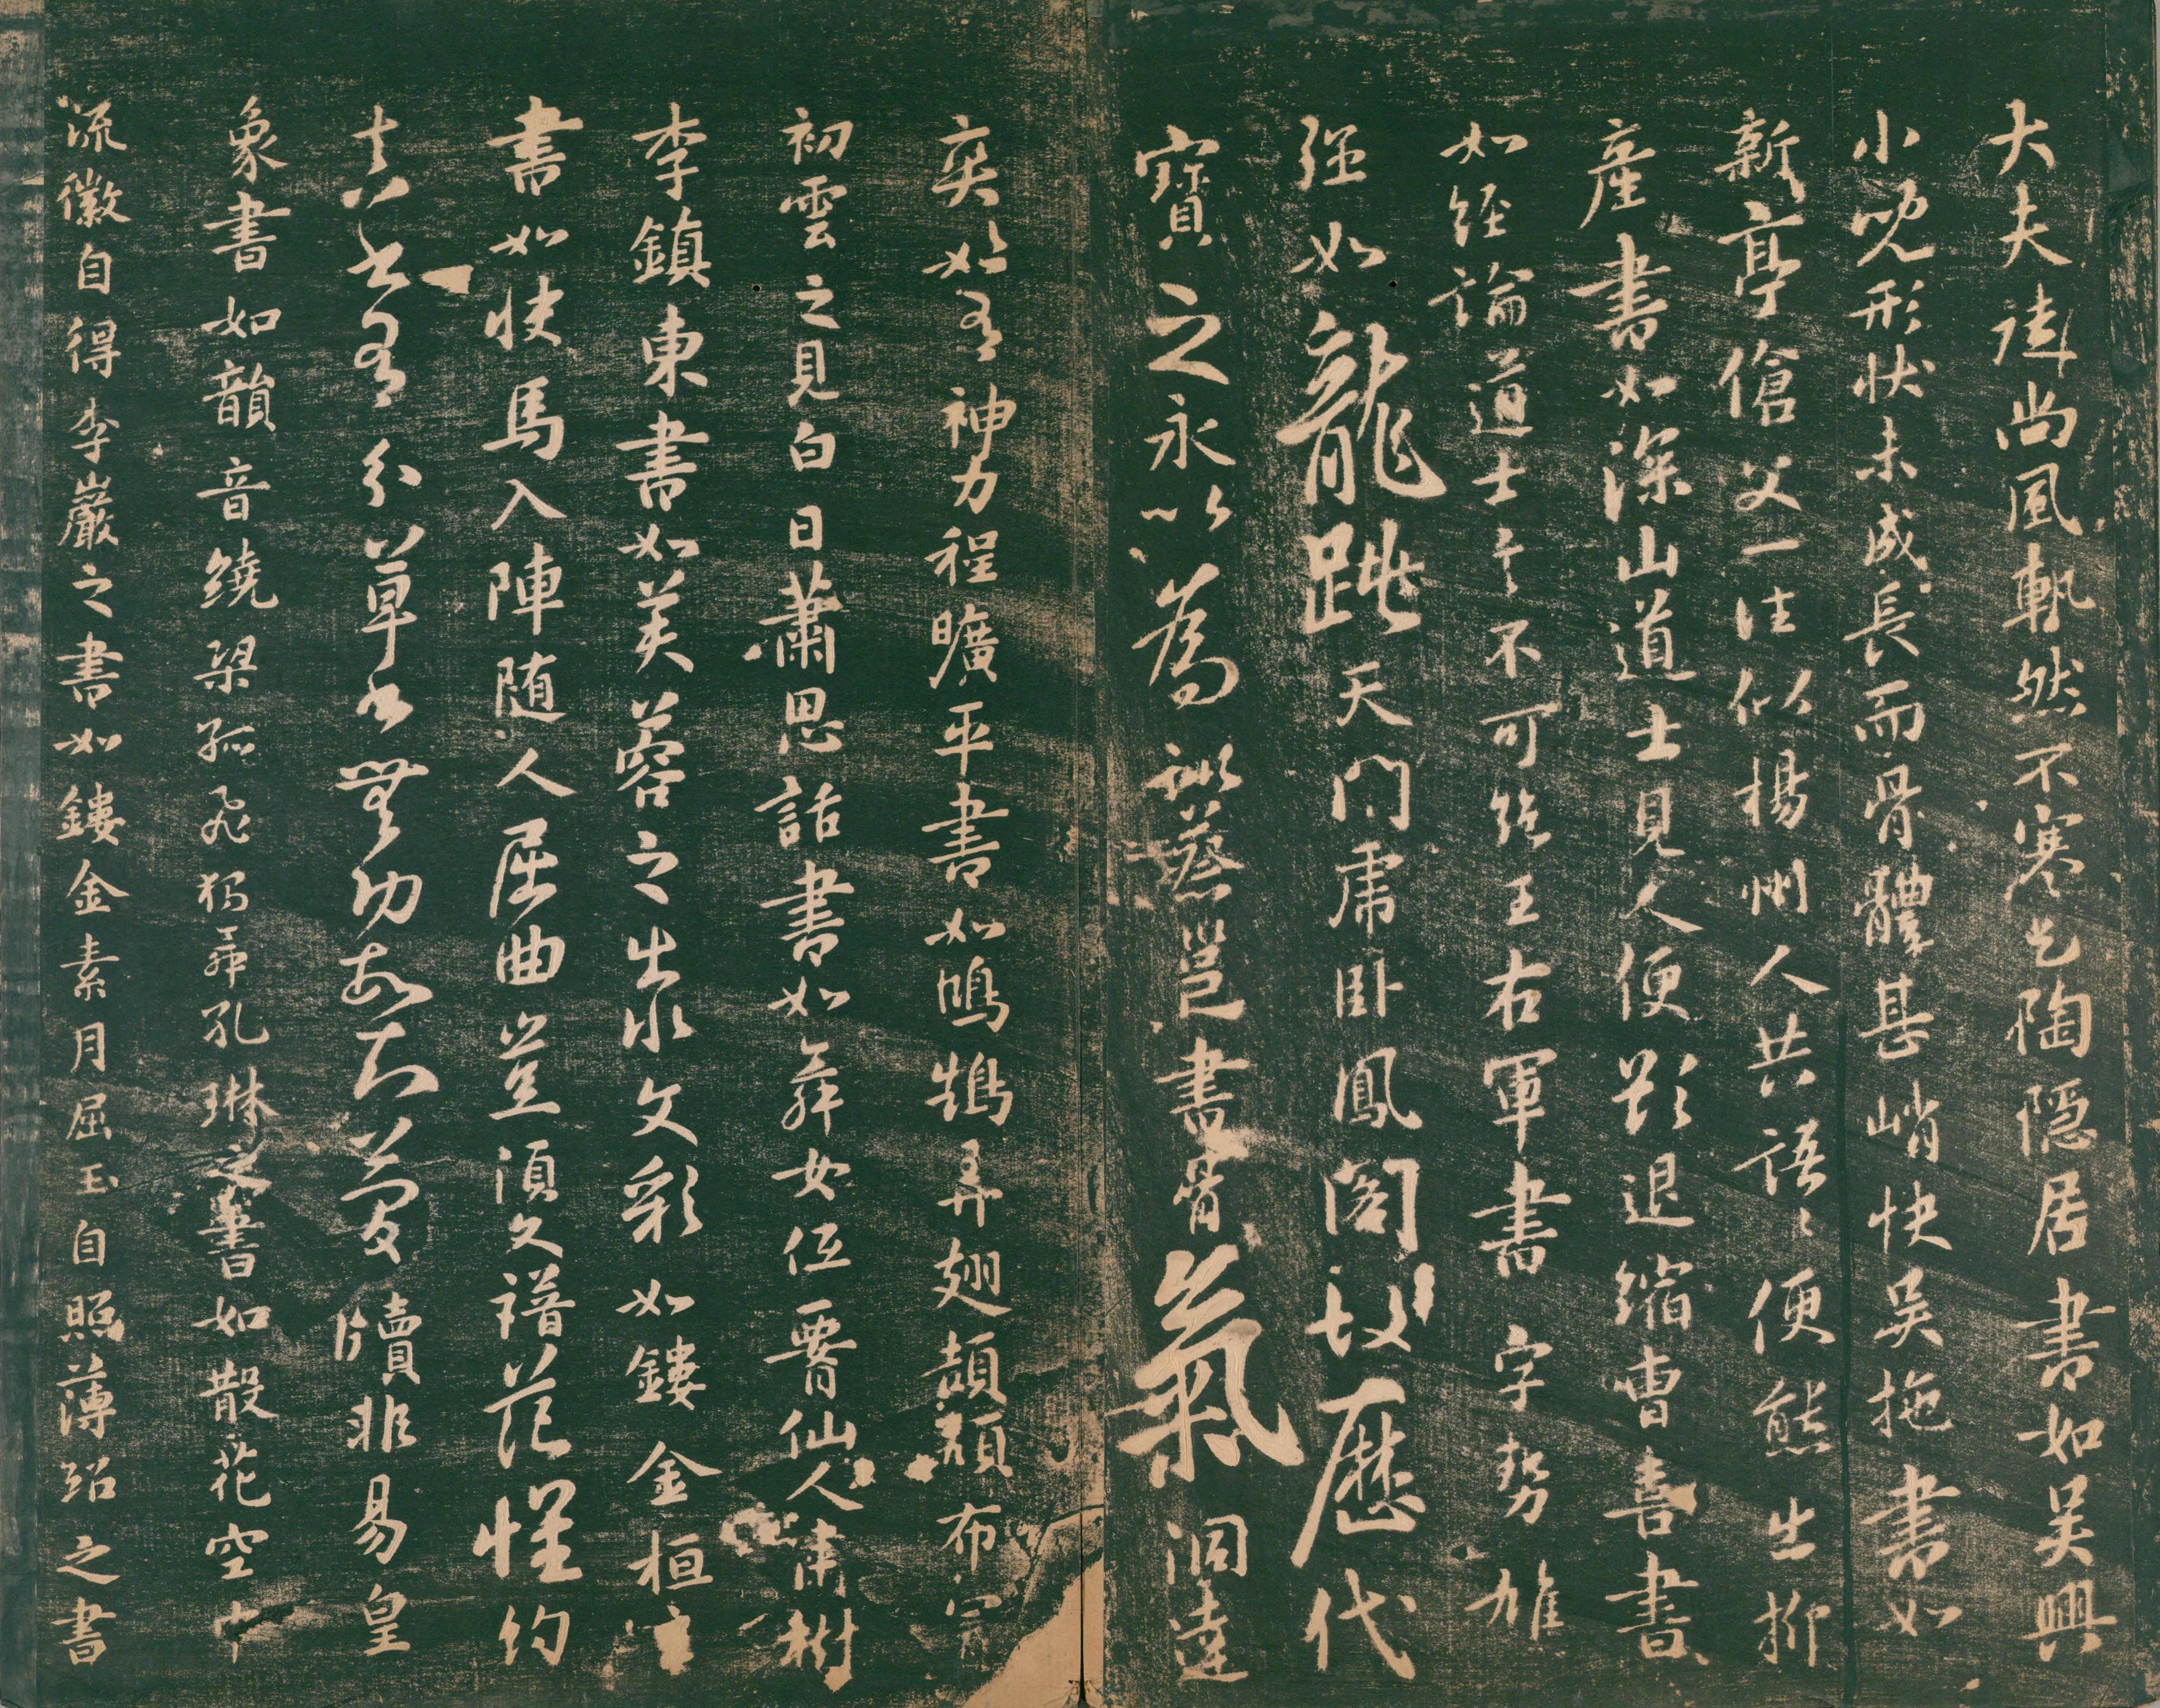 大夫讳尚風軌然不寒乞陶隱居書如吳興
小児形狀未成長而骨體甚峭快吳拖書如
新亭傖父一往似楊州人共語語便態出柳
産書如深山道士見人便欲退縮曹喜書
如經論道士言不可絕王右軍書字勢雄
强如龍跳天門虎卧鳳閣故歷代
寶之永以為訓蔡邕書骨氣洞達
爽如有神力程曠平書如鳴鵠弄翅頡頏布置
初雲之見白日蕭思話書如舞女伍腰仙人肅樹
李鎮東書如芙蓉之出水文彩如鏤金桓玄
書如快馬入陣随人屈曲豈須文譜范懷約
真書有分草書無功故知簡牘非易皇
象書如韻音繞梁孤飛独舞孔琳之書如散花空中
流徽自得李巖之書如鏤金素月屈玉自照薄紹之書